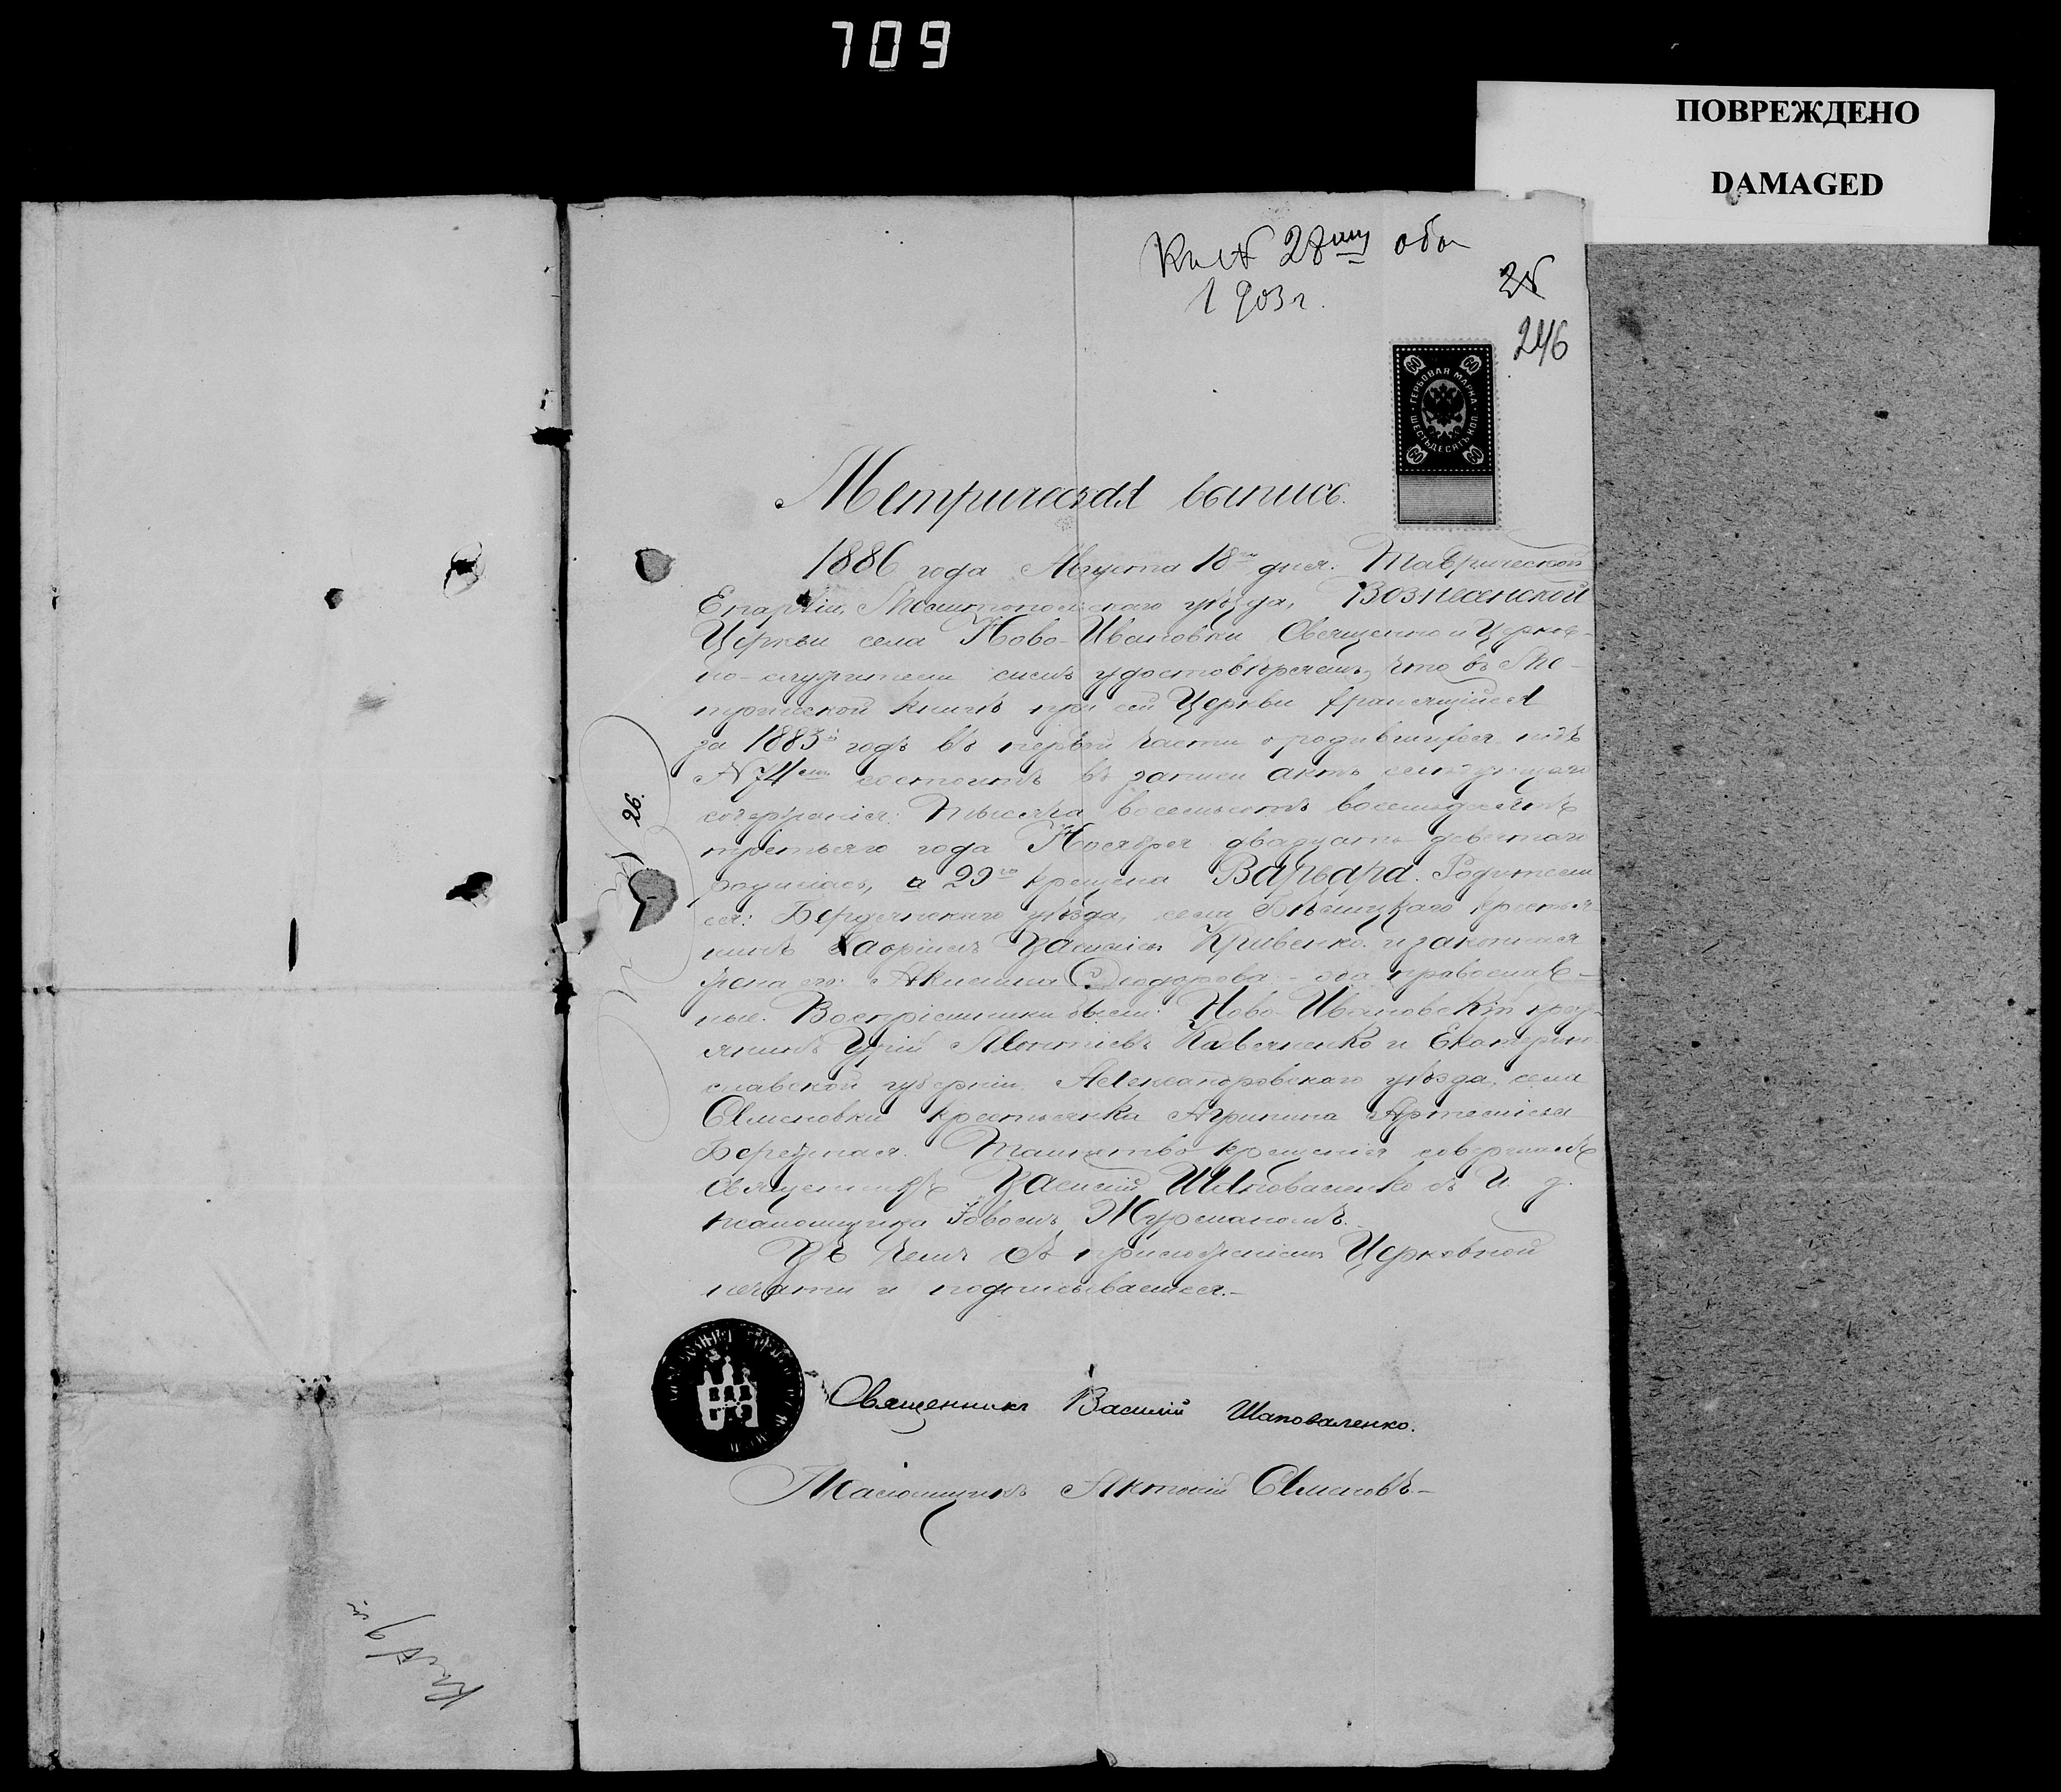 709
ПОВРЕЖДЕНО
DAMAGED
28 обо
1903 г.
246
60 60
ГЕРБОВАЯ МАРКА
ШЕСТЬДЕСЯТЪ КОП.
60 60
Метрическая выпись.
1886 года Августа 18 дня. Таврической
Епархіи, Мелитопольскаго уѣзда, Вознесенской
Церкви села Ново-Ивановки Священно и Церков-
но-служители симъ удостовѣряемъ, что въ Ме-
трической книгѣ при сей Церкви хранящійся
за 1883й годъ въ первой части о родившихся подъ
№ 74 состоитъ въ записи актъ слѣдующаго
содержанія: Тысяча восемьсотъ восемьдесятъ
третьяго года Ноября двадцать девятаго
родилась, а 29го крещена Варвара. Родители
ея: Бердянскаго уѣзда, села крестья-
нинъ Гавріилъ Василіевъ Кривенко и законная
жена его Акилина - оба православ-
ные. Воспріемники были: Ново-Ивановскій
Леонтіевъ и Екатерино-
славской губерніи, Александровскаго уѣзда, села
крестьянка Агрипина Артеміева
Бережная. Таинство крещенія совершалъ
Священникъ Василій Шаповаленко съ И. д.
псаломщика Іовомъ Журманомъ.
Въ чемъ съ приложеніемъ Церковной
печати и подписываемся.-
26.
Священникъ Василій Шаповаленко.
Псаломщикъ